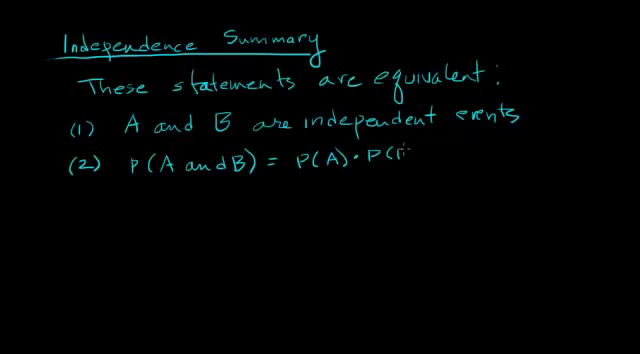 Independence Summary
These statements are equivalent:
(1) A and B are independent events
(2) P(A and B) = P(A) · P(